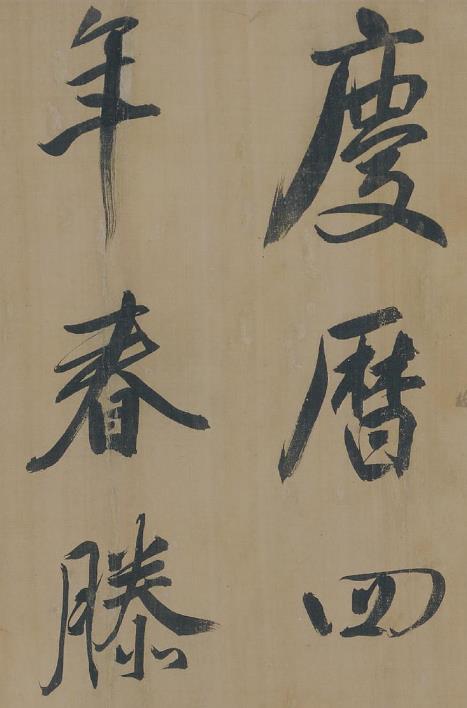 慶曆四
年春滕